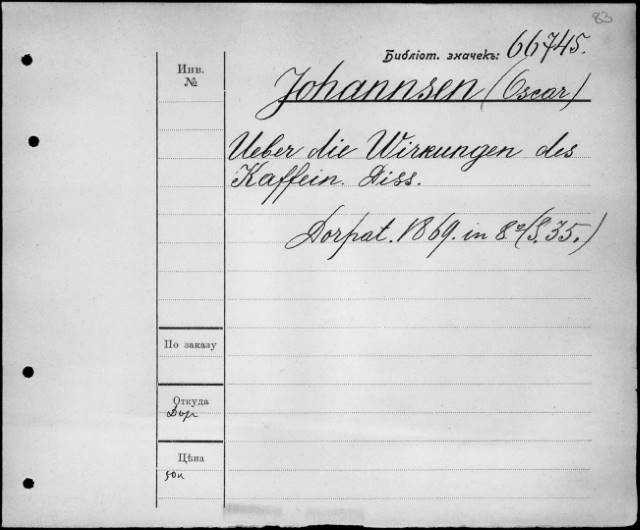 83
Библіот. значекъ: 66745.
Инв.
№
Johannsen (Oscar)
Ueber die Wirkungen des
Kaffein. Diss.
Dorpat. 1869. in 8º (S. 35.)
По заказу
Откуда
Дор
Цѣна
50к